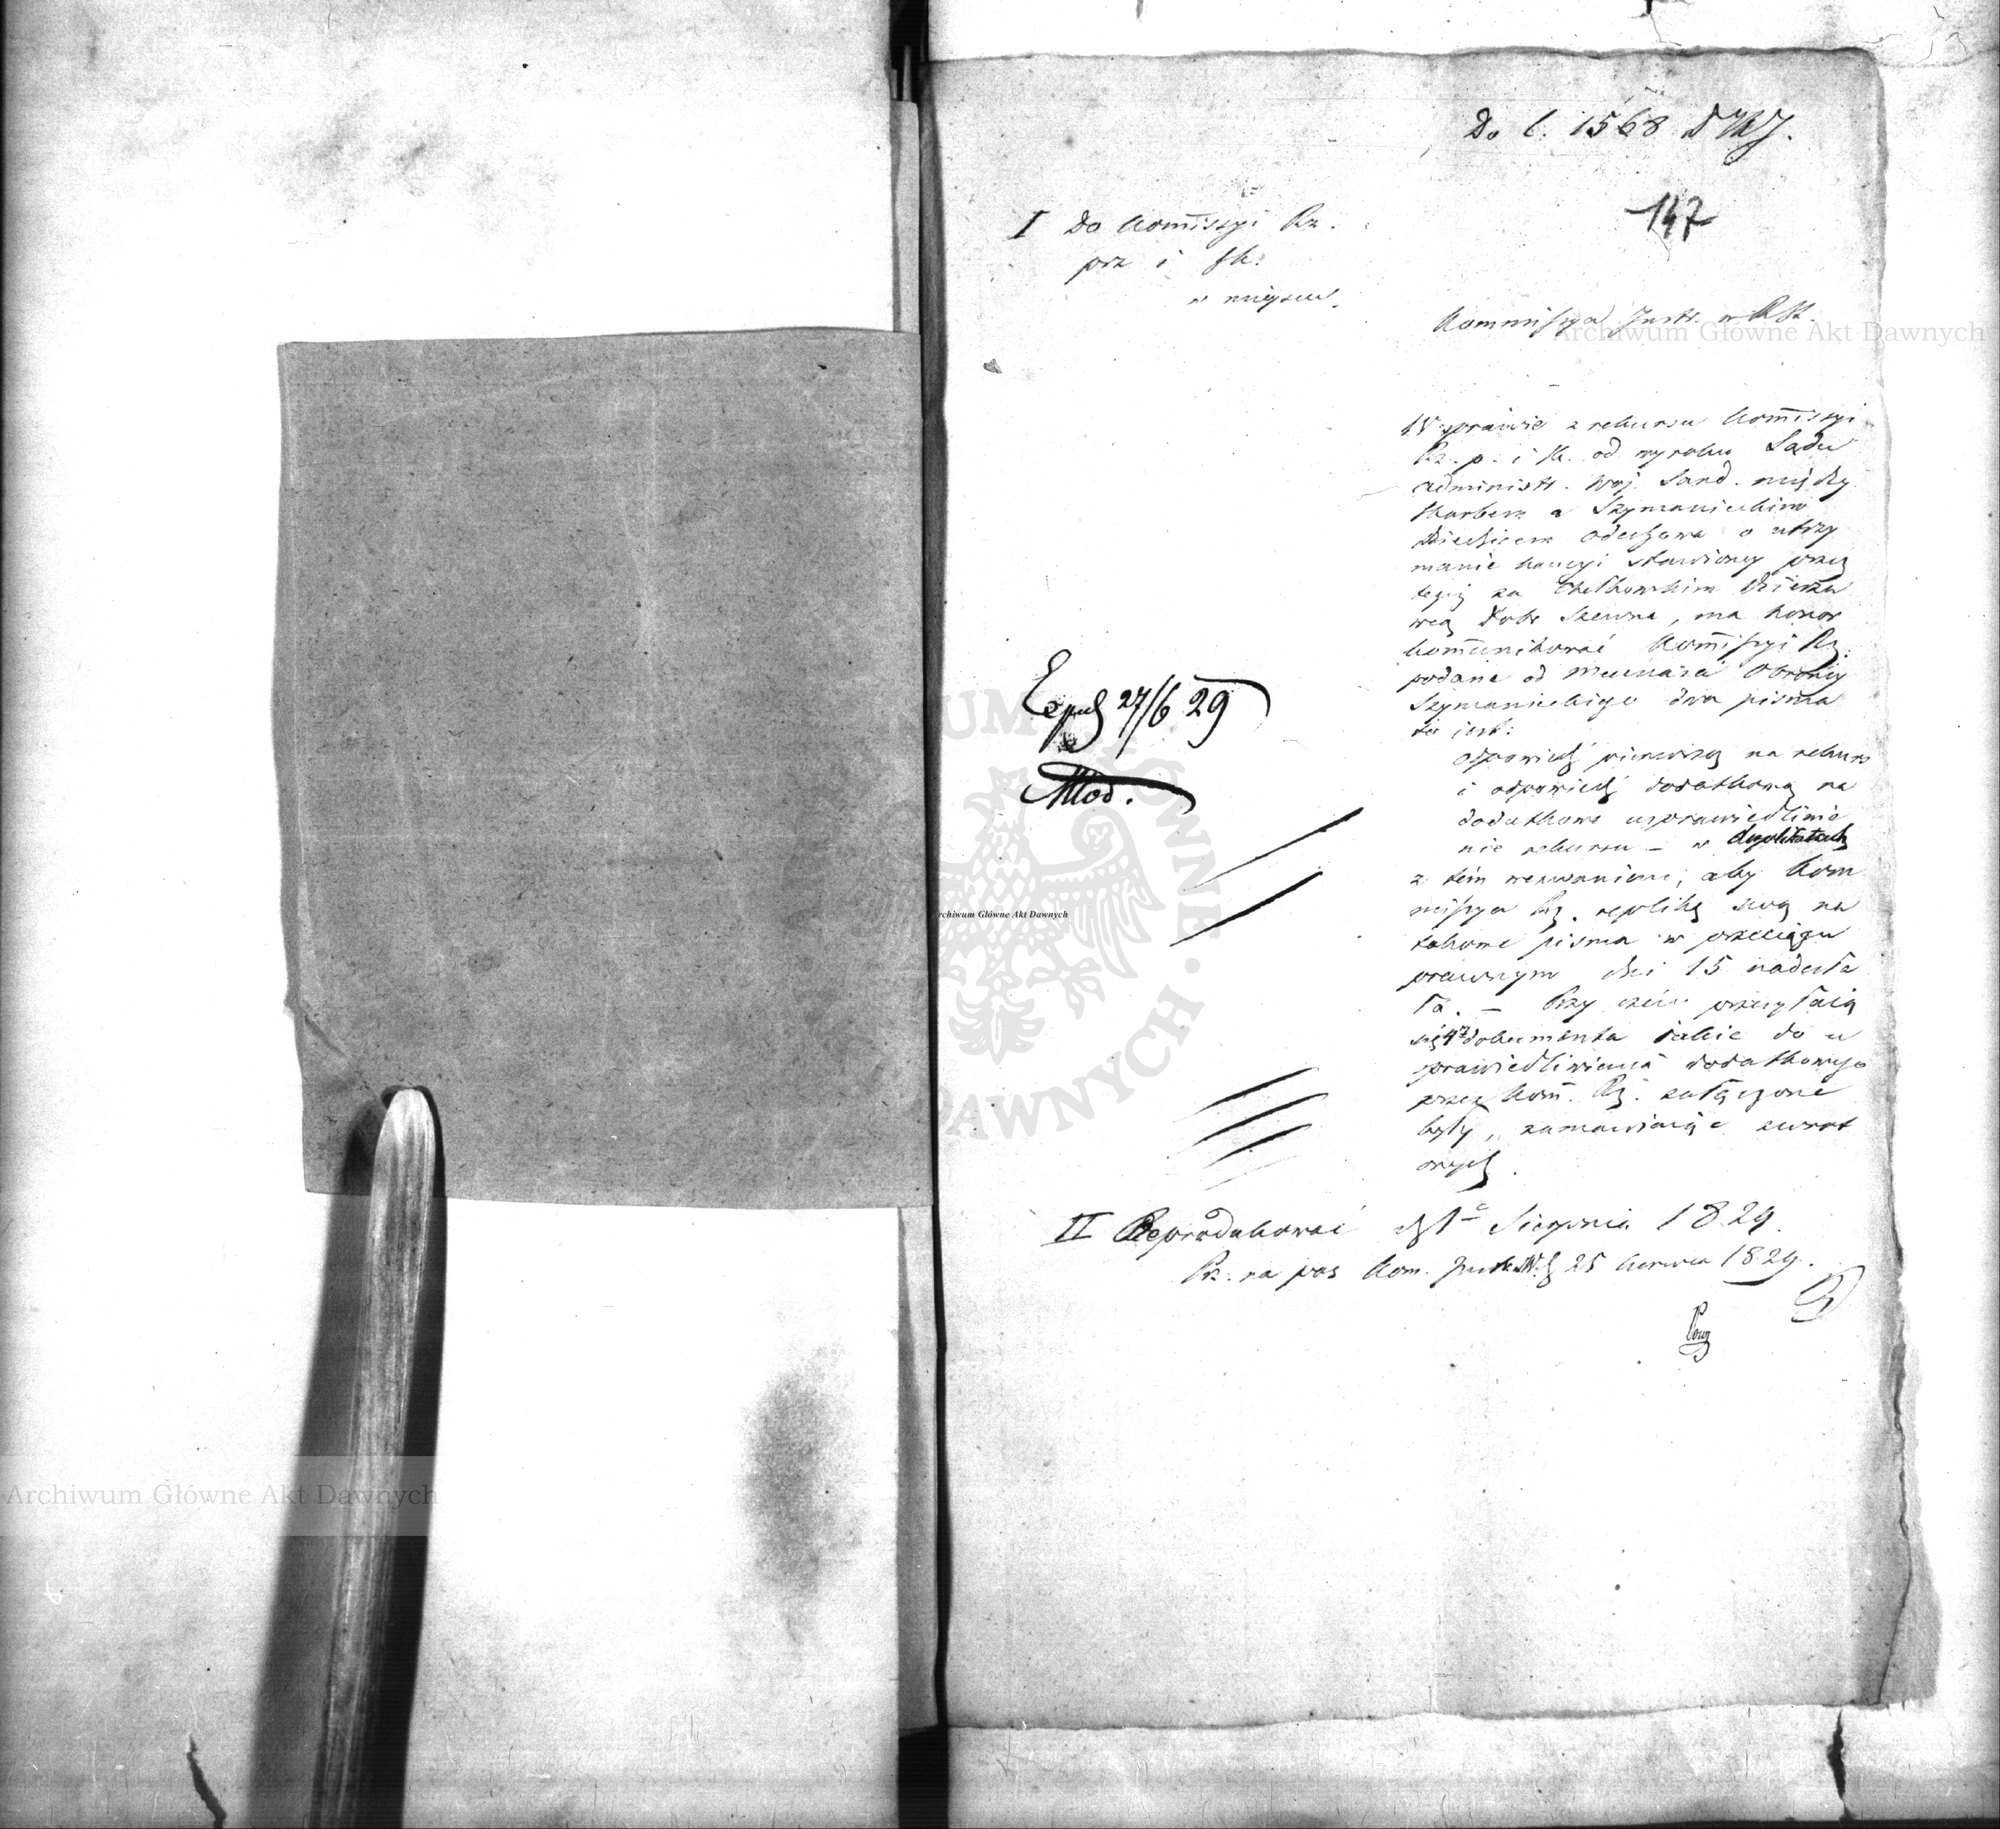 Do l. 1568
147
I Do Kom̄issyi Rz.
prz i Sk.
w mieyscu.
Kommissya Just. w RSt.
W sprawie z rekursu Kom̄issyi
Rz. p. i sk. od wyroku Sądu
administr. Woj. Sand. między
Skarbem a Szymanieckim
dziedzicem Odechowa o utrzy
manie kaucyi stawioney przez
tegoż za Chełkowskim dzierża
wcą dobr Skewna, ma honor
kom̄unikować Kom̄issyi Rz.
podane od Mecenasa Obrońcy
Szymanieckiego dwa pisma
to iest:
odpowiedź pierwszą na rekurs
i odpowiedź dodatkową na
dodatkowe usprawiedliwie
nie rekursu – w duplikatach
z tém wezwaniem, aby Kom
missya Rz. replikę swą na
takowe pisma w przeciągu
prawnym dni 15 nadesła
ła. – Przy czém przesyłaią
się 47 dokumenta iakie do u
sprawiedliwienia dodatkowego
przez Kom̄. Rz. załączone
były, zamawiaiąc zwrot
onych.
Exped 27/6 29
Młod.
II Reprodukować 1 Sierpnia 1829.
Rz. na pos Kom. Just. 25 Czerwca 1829.
Archiwum Główne Akt Dawnych
Archiwum Główne Akt Dawnych
Archiwum Główne Akt Dawnych